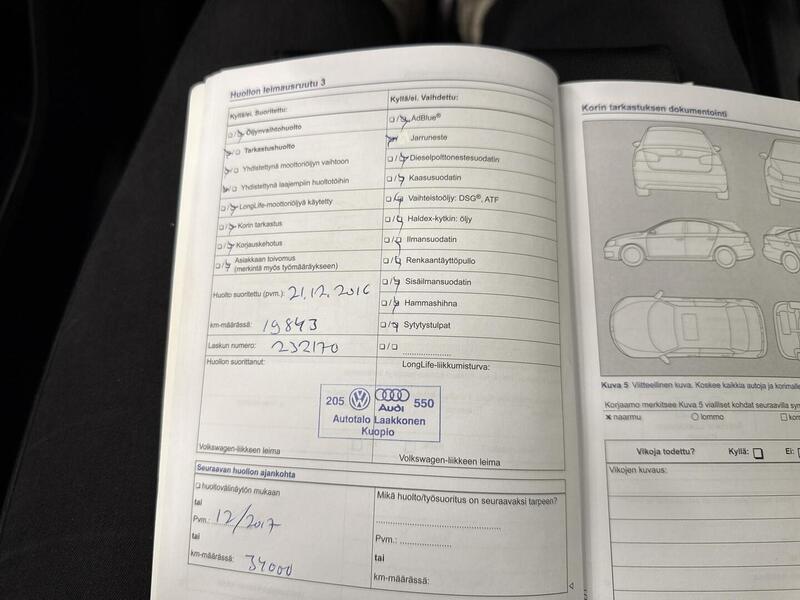 Huollon leimausruutu 3
Kyllä/ei. Suoritettu:
Öljynvaihtohuolto
Tarkastushuolto
Yhdistettynä moottoriöljyn vaihtoon
Yhdistettynä laajempiin huoltotöihin
LongLife-moottoriöljyä käytetty
Korin tarkastus
Korjauskehotus
Asiakkaan toivomus
(merkintä myös työmääräykseen)
Huolto suoritettu (pvm.): 21.12.2016
km-määrässä: 19843
Laskun numero: 232170
Huollon suorittanut:
Kyllä/ei. Vaihdettu:
AdBlue®
Jarruneste
Dieselpolttonestesuodatin
Kaasusuodatin
Vaihteistoöljy: DSG®, ATF
Haldex-kytkin: öljy
Ilmansuodatin
Renkaantäyttöpullo
Sisäilmansuodatin
Hammashihna
Sytytystulpat
LongLife-liikkumisturva:
205 VW Audi 550
Autotalo Laakkonen
Kuopio
Volkswagen-liikkeen leima
Volkswagen-liikkeen leima
Seuraavan huollon ajankohta
huoltovälinäytön mukaan
tai
Pvm.: 12/2017
tai
km-määrässä: 34000
Mikä huolto/työsuoritus on seuraavaksi tarpeen?
Pvm.:
tai
km-määrässä:
Korin tarkastuksen dokumentointi
Kuva 5 Viitteellinen kuva. Koskee kaikkia autoja ja
Korjaamo merkitsee Kuva 5 vialliset kohdat seuraavilla
naarmu lommo
Vikoja todettu? Kyllä: Ei:
Vikojen kuvaus: